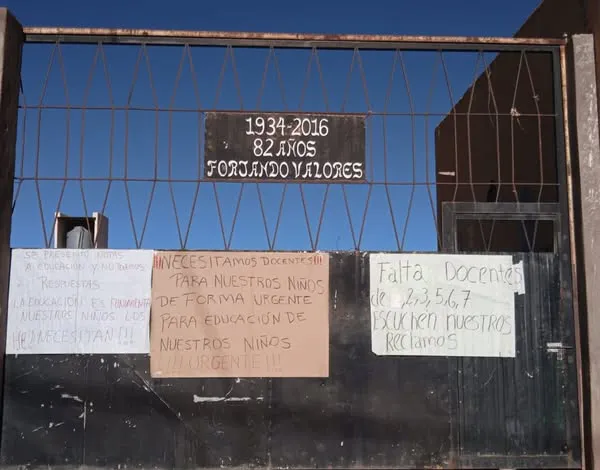 1934-2016
82 AÑOS
FORJANDO VALORES
SE PRESENTÓ NOTAS
A EDUCACIÓN Y NO TENEMOS
RESPUESTAS
LA EDUCACIÓN ES FUNDAMENTAL
NUESTROS NIÑOS LOS
NECESITAN!!!
!!!NECESITAMOS DOCENTES!!!
PARA NUESTROS NIÑOS
DE FORMA URGENTE
PARA EDUCACIÓN DE
NUESTROS NIÑOS
!!!!URGENTE!!!
Falta Docentes
de 2,3,5,6,7
Escuchen nuestros
Reclamos